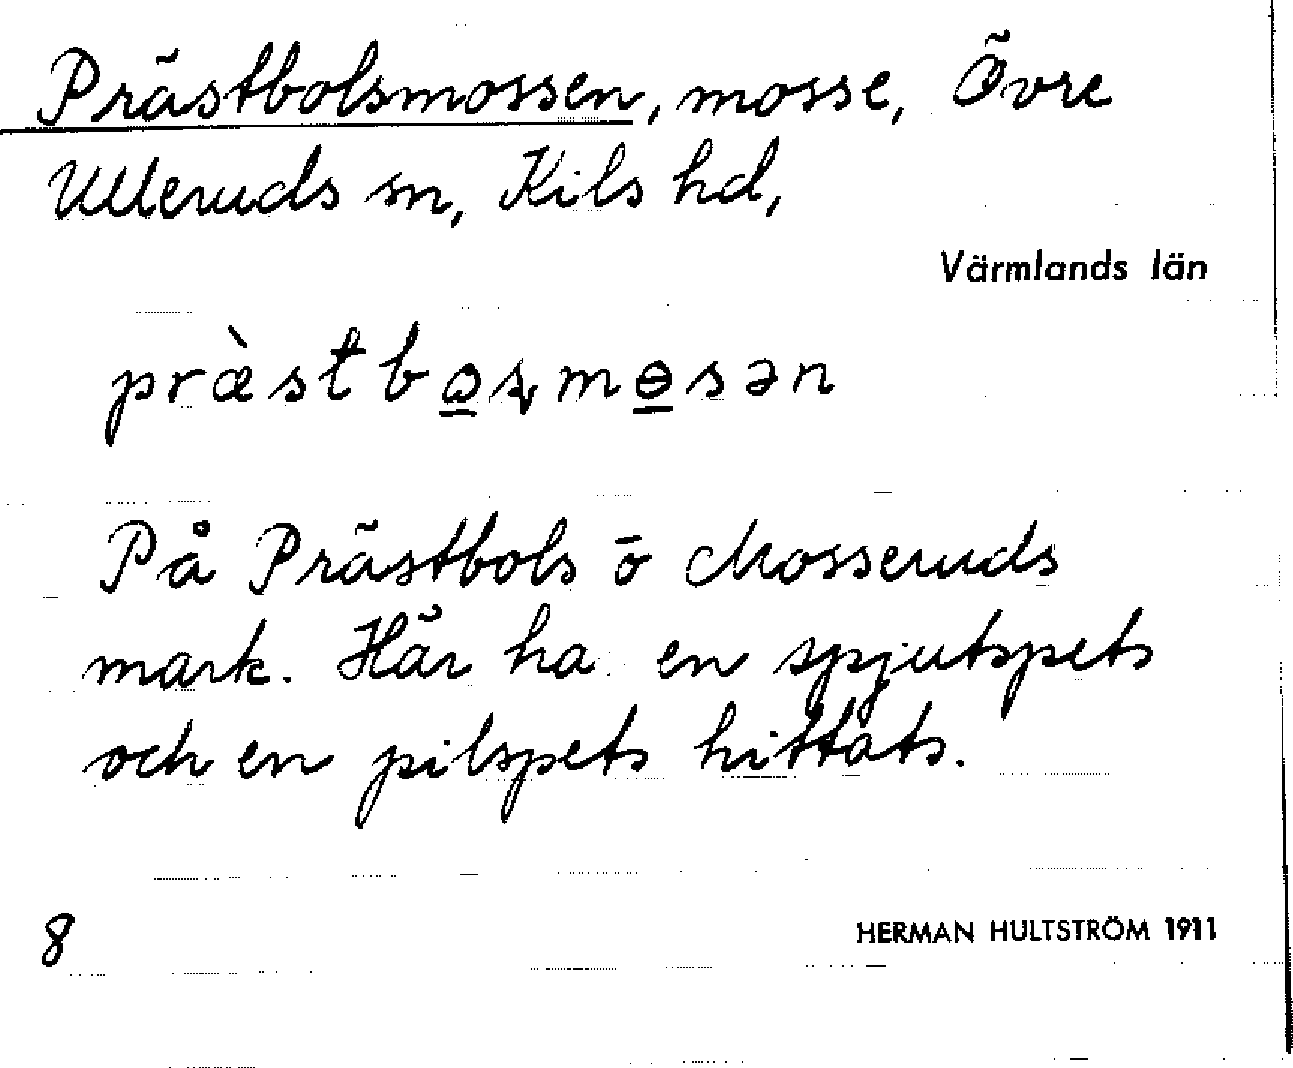 Prästbolsmossen, mosse, Övre
Ulleruds sn, Kils hd,
Värmlands län
præ̀stbo̲ʂmɵ̲sən
På Prästbols ö Mosseruds
mark. Här ha en spjutspets
och en pilspets hittats.
8 HERMAN HULTSTRÖM 1911